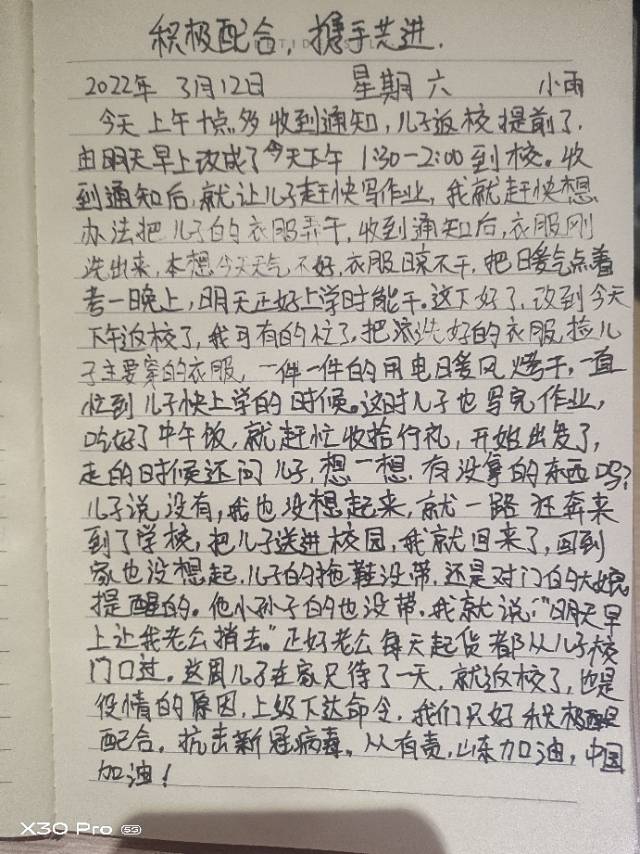 积极配合，携手共进.
2022年 3月12日 星期六 小雨
今天上午十点多收到通知，儿子返校提前了，
由明天早上改成了今天下午 1:30-2:00到校。收
到通知后，就让儿子赶快写作业，我就赶快想
办法把儿子的衣服弄干，收到通知后，衣服刚
洗出来，本想今天天气不好，衣服晾不干，把暖气点着
考一晚上，明天正好上学时能干。这下好了，改到今天
下午返校了，我可有的忙了，把洗好的衣服，捡儿
子主要穿的衣服，一件一件的用电暖风烤干，一直
忙到儿子快上学的时候。这时儿子也写完作业，
吃好了中午饭，就赶忙收拾行礼，开始出发了，
走的时候还问儿子，想一想，有没拿的东西吗？
儿子说，没有，我也没想起来，就一路狂奔来
到了学校，把儿子送进校园，我就回来了，回到
家也没想起，儿子的拖鞋没带，还是对门的大娘
提醒的。他小孙子的也没带。我就说：“明天早
上让我老公捎去。”正好老公每天起货都从儿子校
门口过。这周儿子在家只待了一天，就返校了，也是
役情的原因，上级下达命令，我们只好积极
配合。抗击新冠病毒，从有责，山东加油，中国
加油！
X30 Pro 5G